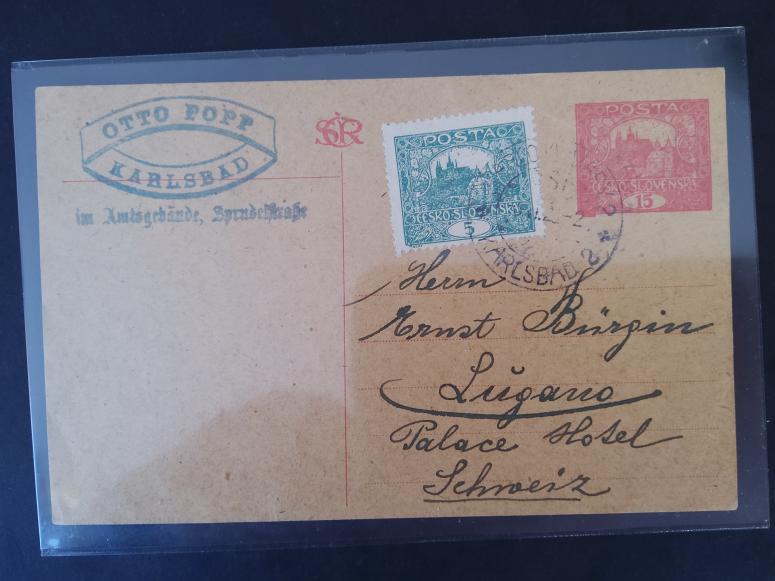 OTTO POPP
KARLSBAD
im Amtsgebäude, Sprudelstraße
ČSR
POSTA
ČESKO-SLOVENSKÁ
5
POSTA
ČESKO-SLOVENSKÁ
15
KARLSBAD 2
Herrn
Ernst Bürgin
Lugano
Palace Hotel
Schweiz